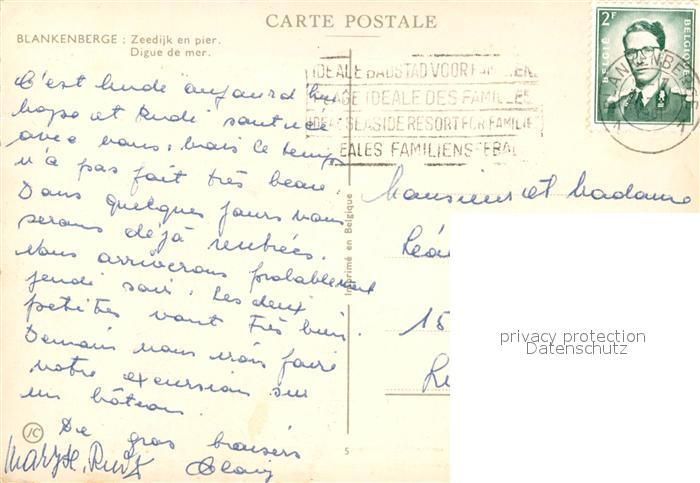 CARTE POSTALE
BLANKENBERGE : Zeedijk en pier.
Digue de mer.
2F
BELGIE BELGIQUE
BLANKENBERGE
IDEALE BADSTAD VOOR FAMILIEN
PLAGE IDEALE DES FAMILLES
IDEAL SEASIDE RESORT FOR FAMILIE
EALES FAMILIENSEEBAD
C'est lundi aujourd'hui
papa et Rudi sont
avec nous; mais le temps
n'a pas fait très beau.
Dans quelques jours nous
serons déjà rentrées.
Nous arriverons probablement
jeudi soir. Les deux
petites vont très bien.
Demain nous irons faire
notre excursion sur
un bâteau.
De gros baisers
Maryse, Rudy
Imprimé en Belgique
5
JC
Monsieur et Madame
Léo
15
privacy protection
Datenschutz